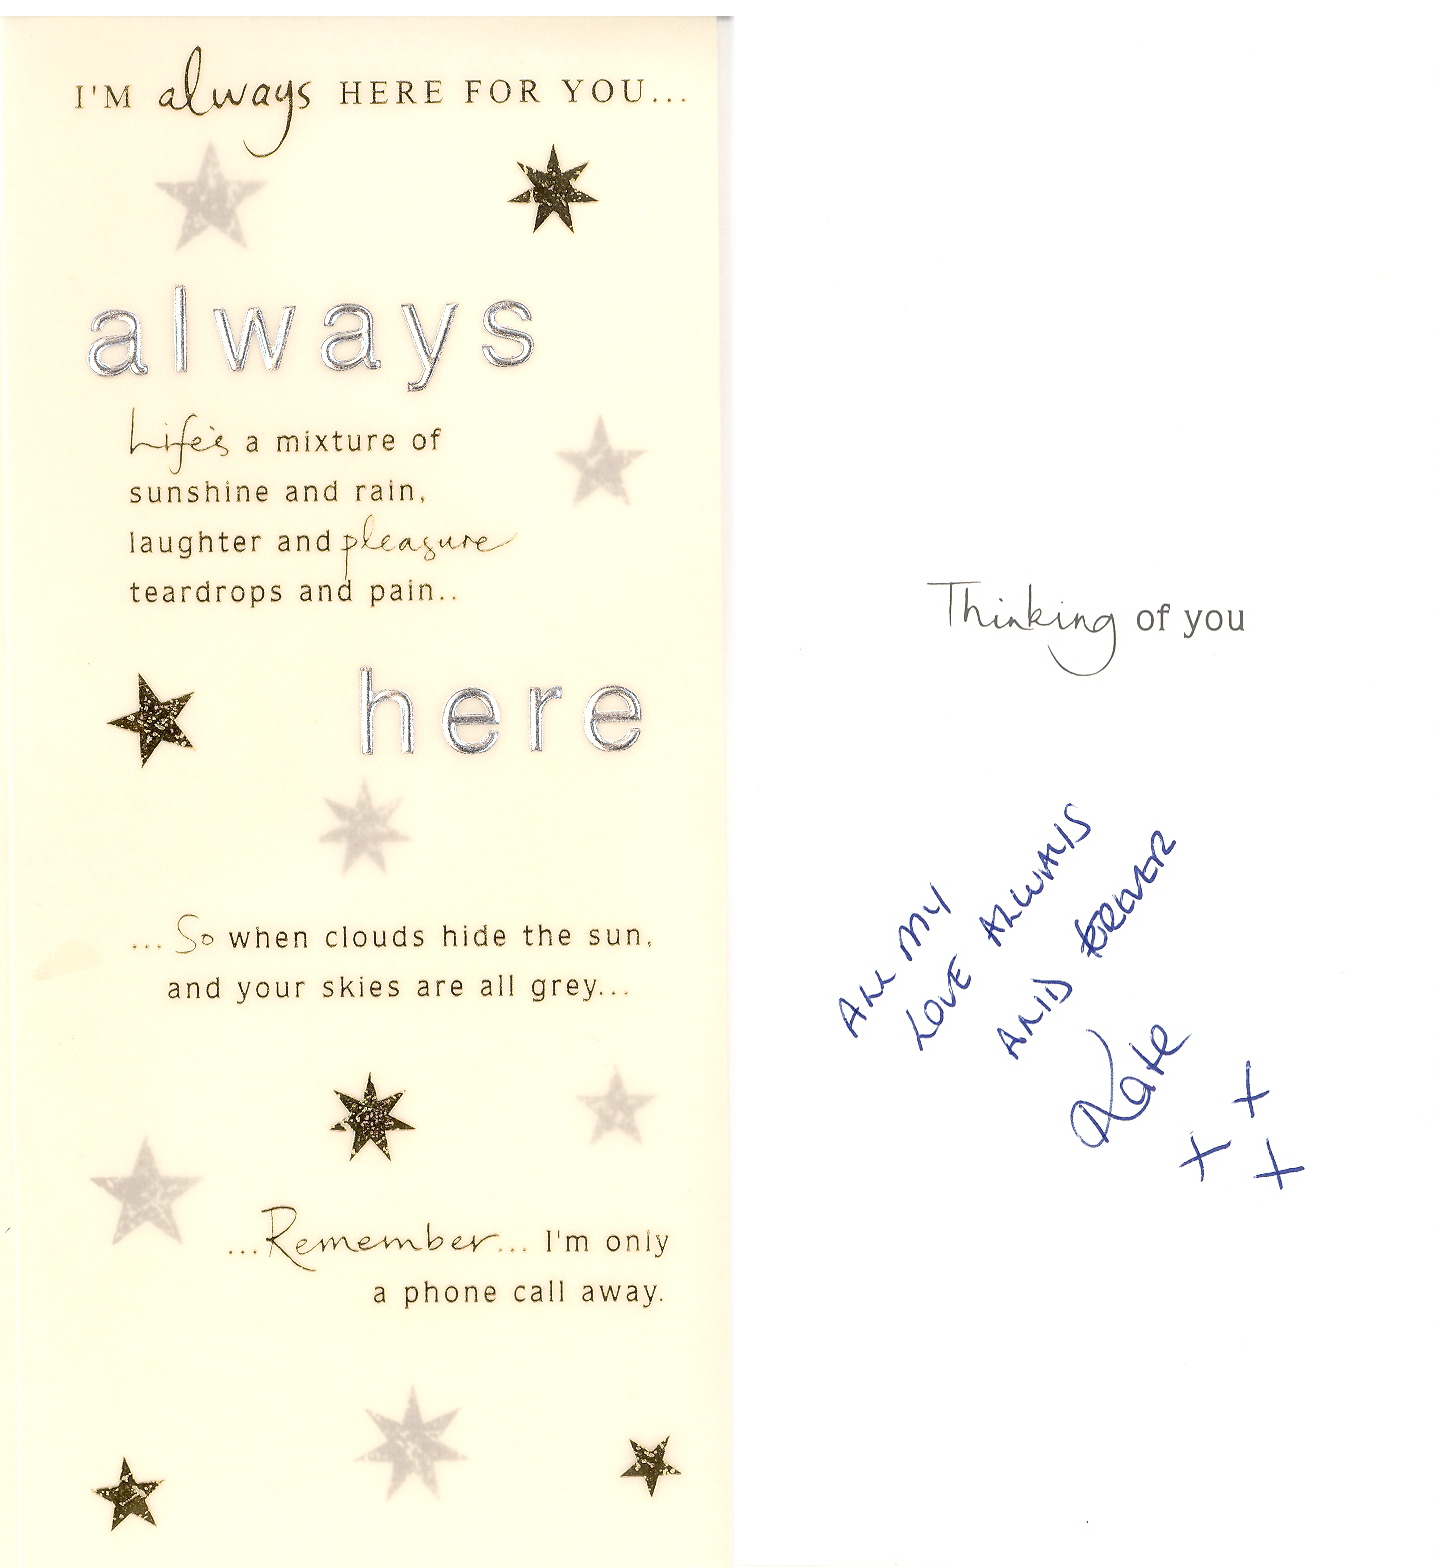 I'M always HERE FOR YOU...
always
Life's a mixture of
sunshine and rain,
laughter and pleasure
teardrops and pain..
here
...So when clouds hide the sun,
and your skies are all grey...
...Remember... I'm only
a phone call away.
Thinking of you
ALL MY
LOVE ALWAYS
AND FOREVER
Kate
X
X X